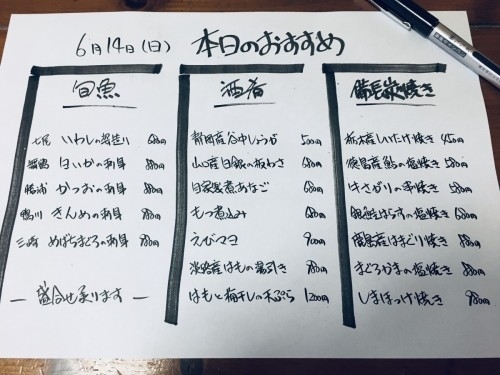 6月14日(日) 本日のおすすめ
旬魚
七尾 いわしの 680円
白いかの刺身 880円
勝浦 かつおの刺身 880円
鴨川 きんめの刺身 980円
三崎 めばちまぐろの刺身 780円
盛合せ承ります
酒肴
静岡産谷中しょうが 500円
山口産白銀の板わさ 680円
自家製煮あなご 680円
もつ煮込み 680円
えびマヨ 900円
淡路産はもの湯引き 980円
はもと梅干しの天ぷら 1200円
備長炭焼き
栃木産しいたけ焼き 450円
徳島産鮎の塩焼き 580円
牛さがりの串焼き 580円
銀鮭はらすの塩焼き 680円
はまぐり焼き 880円
まぐろかまの塩焼き 880円
しまほっけ焼き 980円